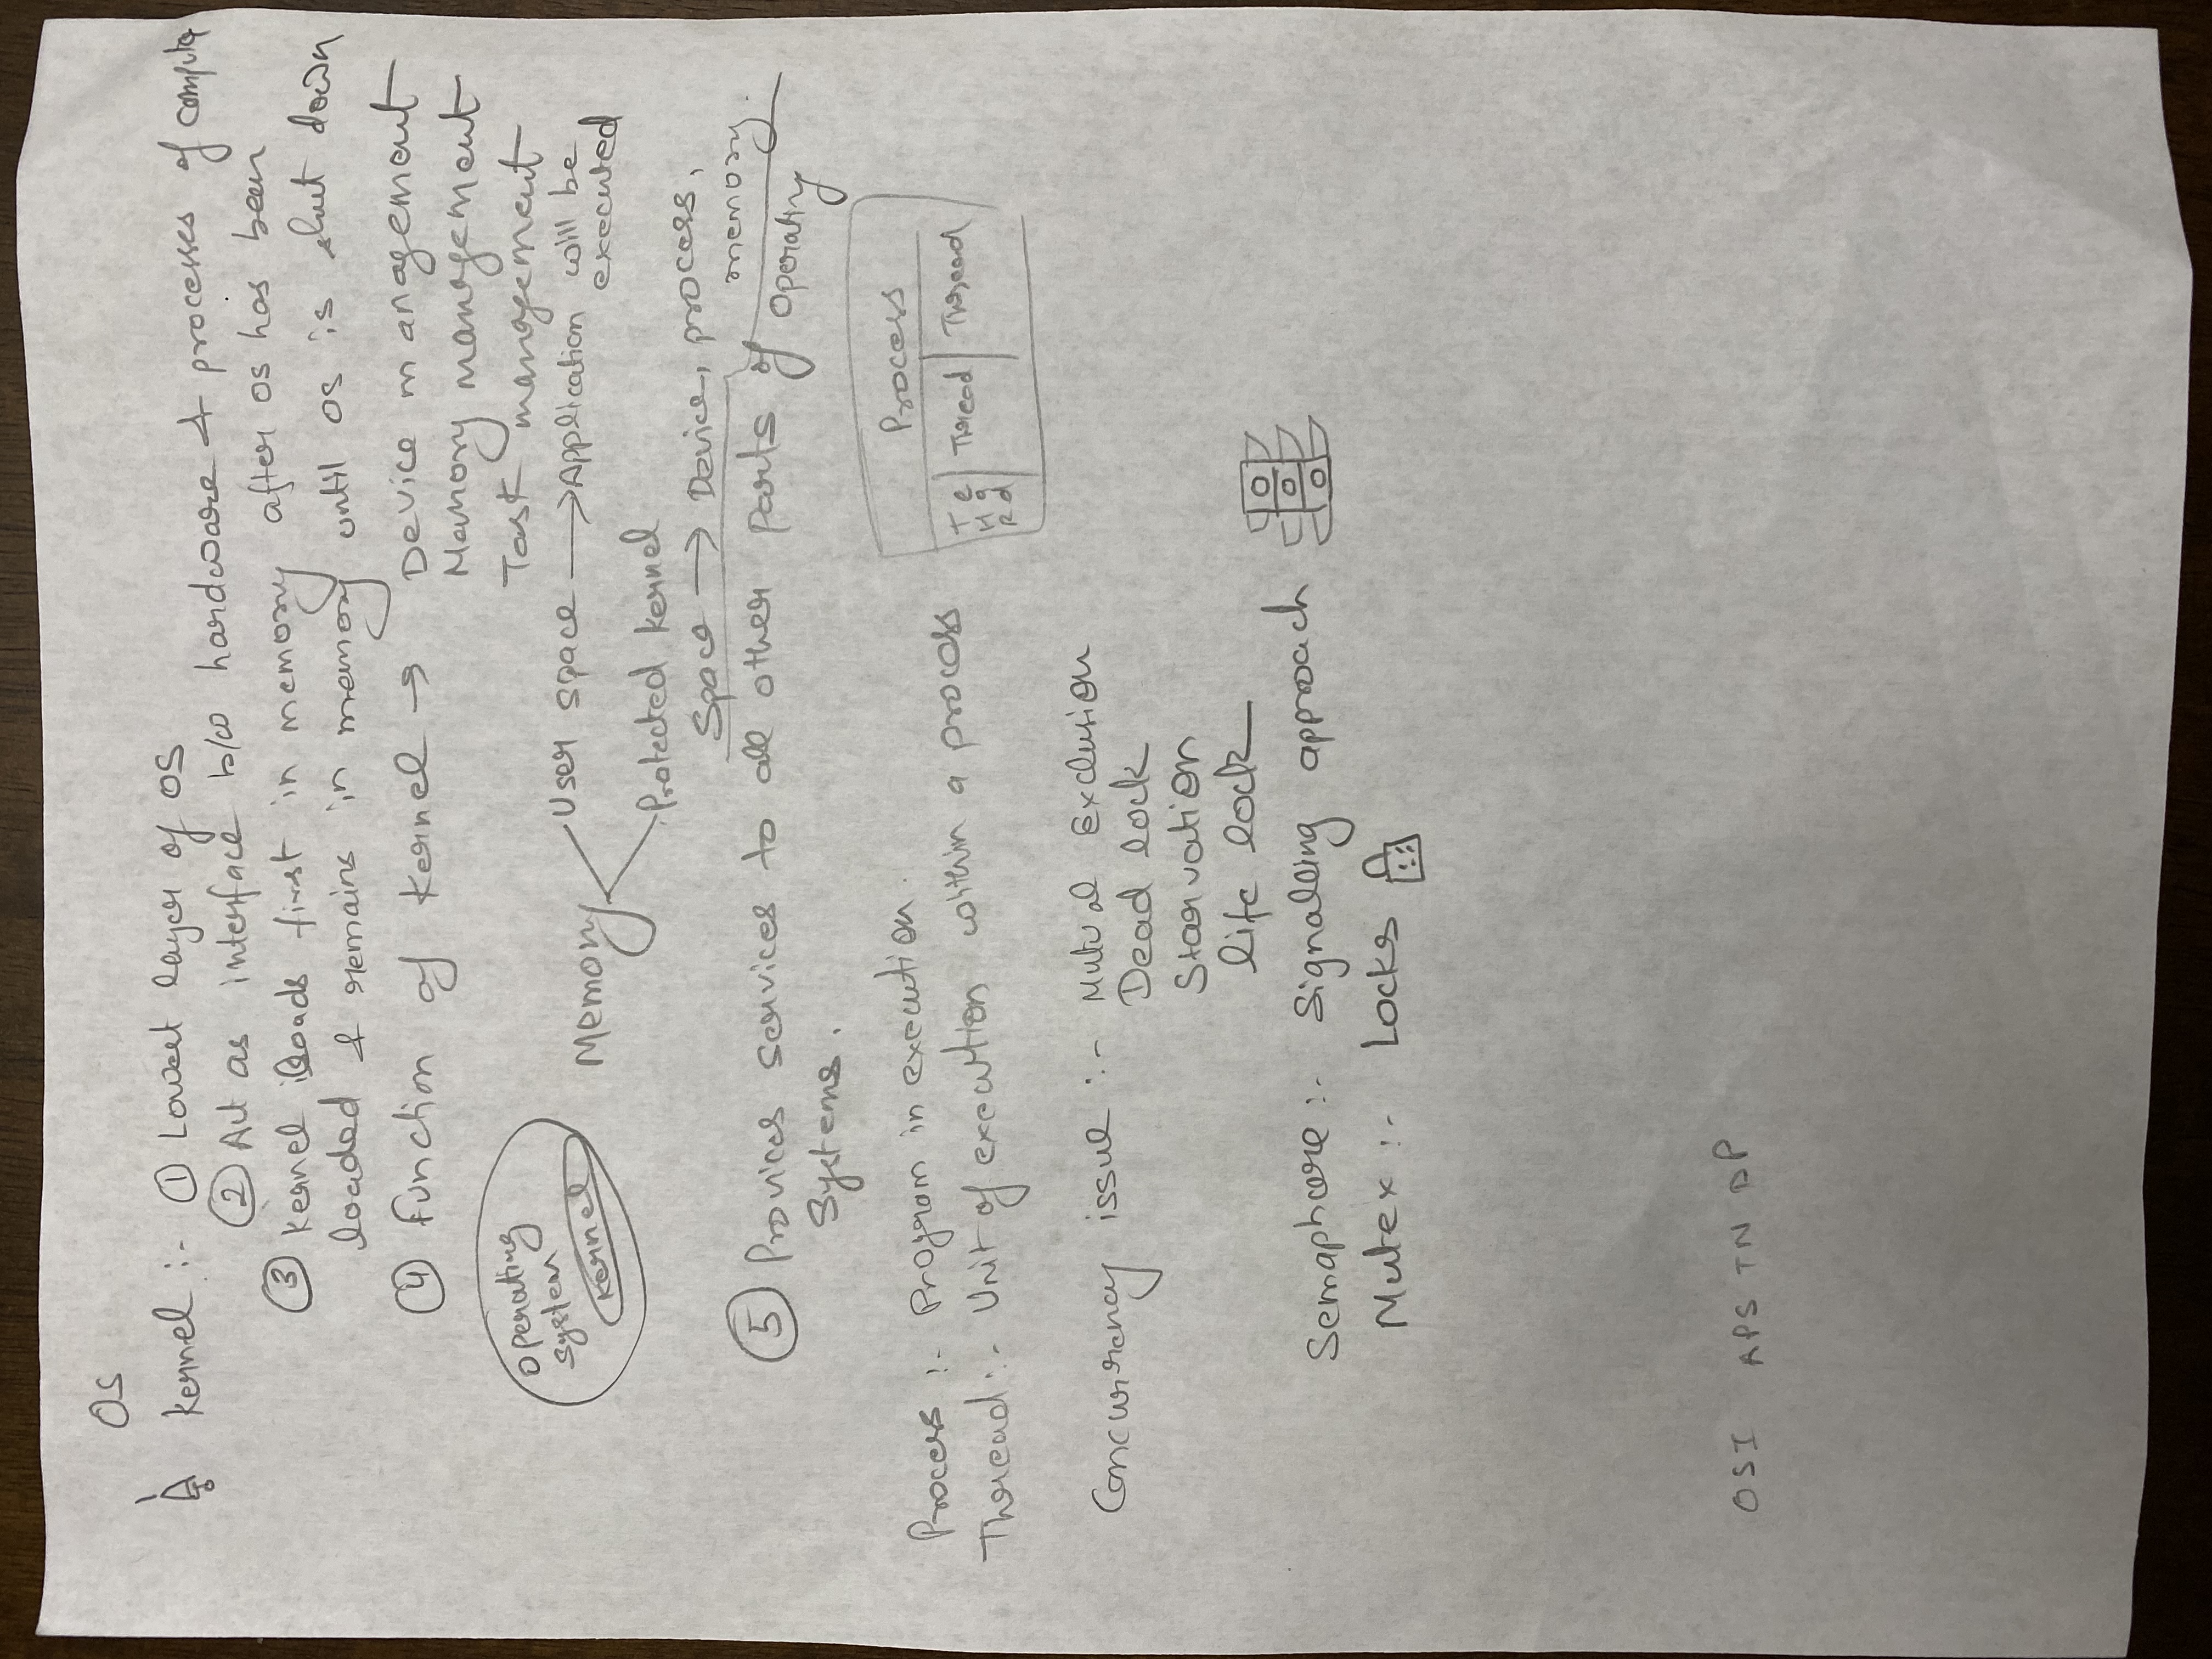 OS
Kernel :- ① Lowest layer of OS
② Act as interface b/w hardware & processes of computer
③ Kernel loads first in memory after OS has been
loaded & remains in memory until OS is shut down
④ Function of Kernel → Device management
Memory management
Task management
Operating
System
Kernel
Memory
User space → Application will be
executed
Protected Kernel
Space → Device, process,
memory.
⑤ Provices services to all other parts of Operating
Systems.
Process :- Program in execution.
Thread :- Unit of execution within a process
Process
THRead Thread Thread
Concurrency issue :- Mutual Exclusion
Dead lock
Starvation
life lock
Semaphore :- Signalling approach
Mutex :- Locks
OSI APS TN DP